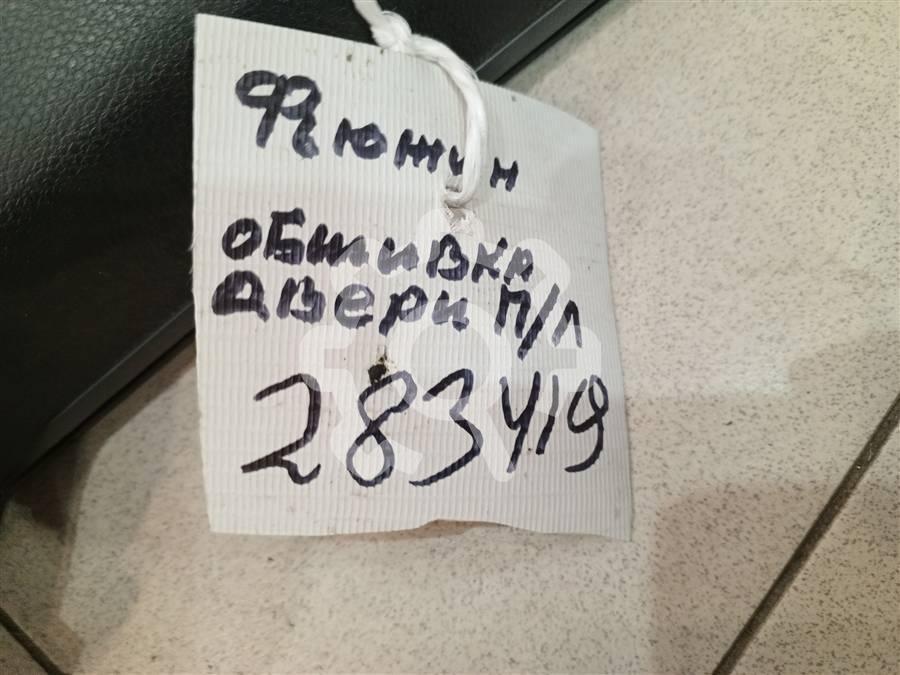 Фюжин
обшивка
двери п/л
283419